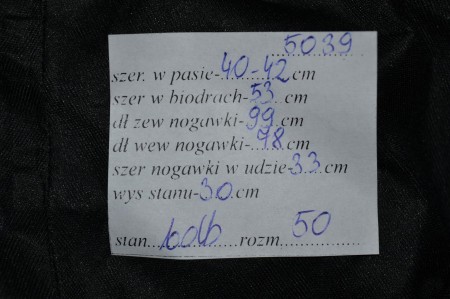 5039
szer. w pasie-40-42cm
szer w biodrach-53 cm
dł zew nogawki-99.cm
dł wew nogawki-.98.cm
szer nogawki w udzie-33.cm
wys stanu-30.cm
stan....bdb............rozm....50............